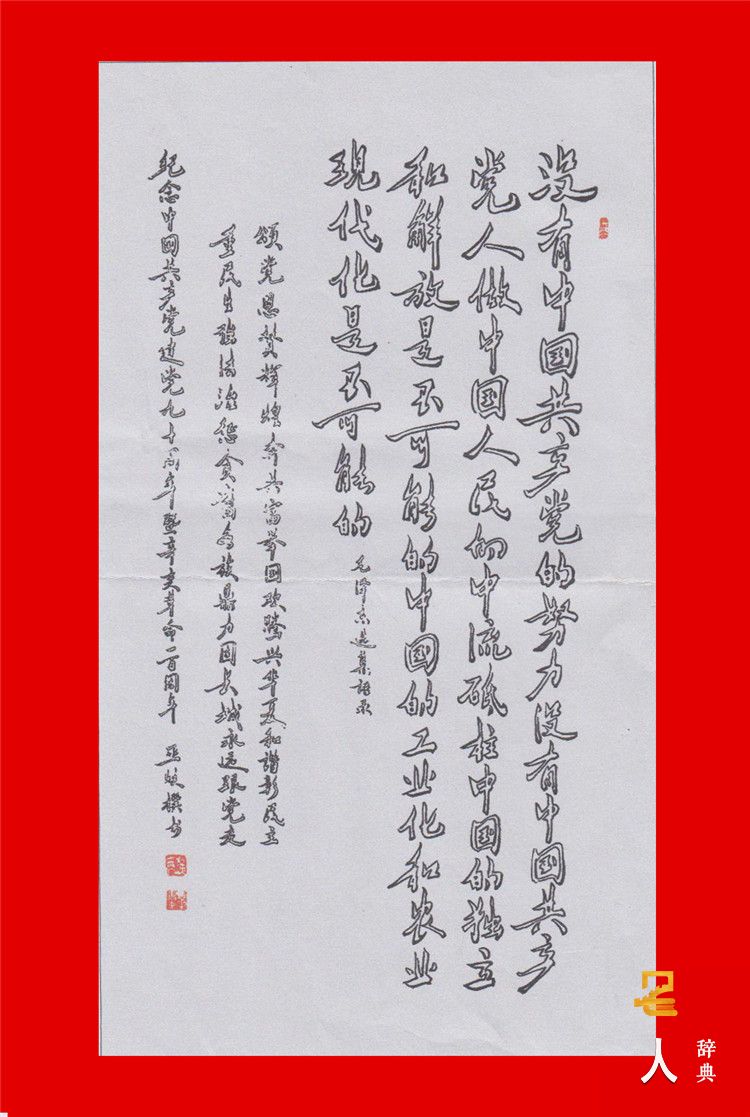 没有中国共产党的努力没有中国共产
党人做中国人民的中流砥柱中国的独立
和解放是不可能的中国的工业化和农业
现代化是不可能的
毛泽东选集语录
颂党恩赞辉煌奔共富举国欢腾兴华夏和谐彰民主
重民生强法治惩贪富民族鼎力固长城永远跟党走
纪念中国共产党建党九十周年暨辛亥革命一百周年
撰书
人
辞典